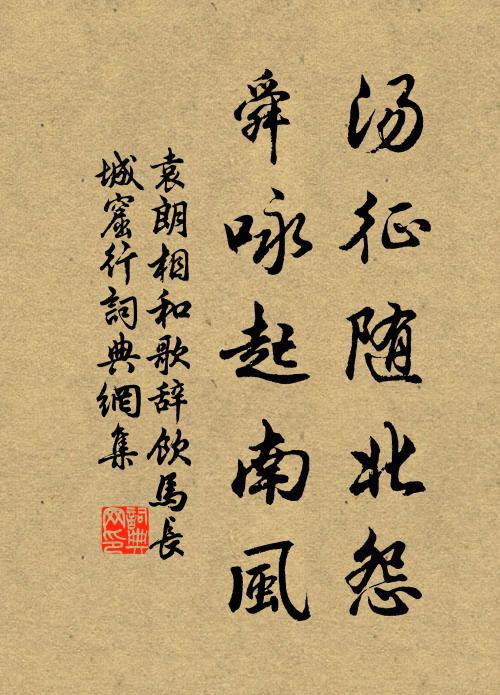 汤征随北怨
舜咏起南風
袁朗相和歌辞饮馬长
城窟行詞典網集
詞典
网印